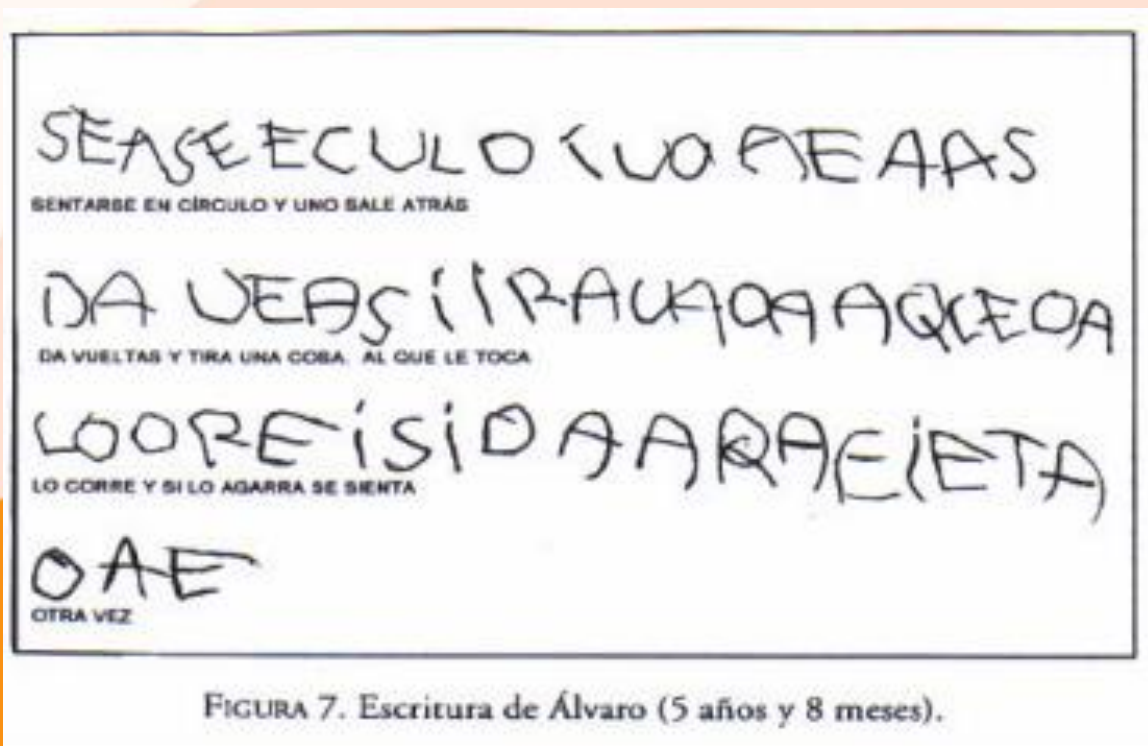 SEASE ECULO I UO AE AAS
SENTARSE EN CÍRCULO Y UNO SALE ATRÁS
DA VEAS i IRA UA OA AQLEOA
DA VUELTAS Y TIRA UNA COSA AL QUE LE TOCA
LOORE i Si O AARA E iETA
LO CORRE Y SI LO AGARRA SE SIENTA
OAE
OTRA VEZ
FIGURA 7. Escritura de Álvaro (5 años y 8 meses).